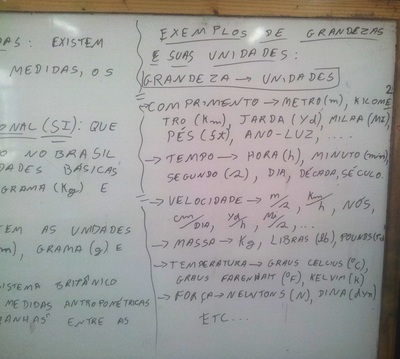 DAS: EXISTEM
MEDIDAS, OS
ONAL (SI): QUE
O NO BRASIL
DADES BÁSICAS
GRAMA (Kg) E
TEM AS UNIDADES
m), GRAMA (g) E
SISTEMA BRITÂNICO
MEDIDAS ANTROPOMÉTRICAS
MANHAS ENTRE AS
EXEMPLOS DE GRANDEZAS
E SUAS UNIDADES:
GRANDEZA → UNIDADES
2
→ COMPRIMENTO → METRO (m), KILOME
TRO (Km), JARDA (Yd), MILHA (MI),
PÉS (ft), ANO-LUZ, ....
→ TEMPO → HORA (h), MINUTO (min),
SEGUNDO (s), DIA, DÉCADA, SÉCULO.
→ VELOCIDADE → m/s, Km/h, NÓS,
cm/DIA, Yd/h, Mi/s, ...
→ MASSA → Kg, LIBRAS (lb), POUNDS
→ TEMPERATURA → GRAUS CELCIUS (°C),
GRAUS FARENHAIT (°F), KELVIM (K)
→ FORÇA → NEWTONS (N), DINA (dyn)
ETC...